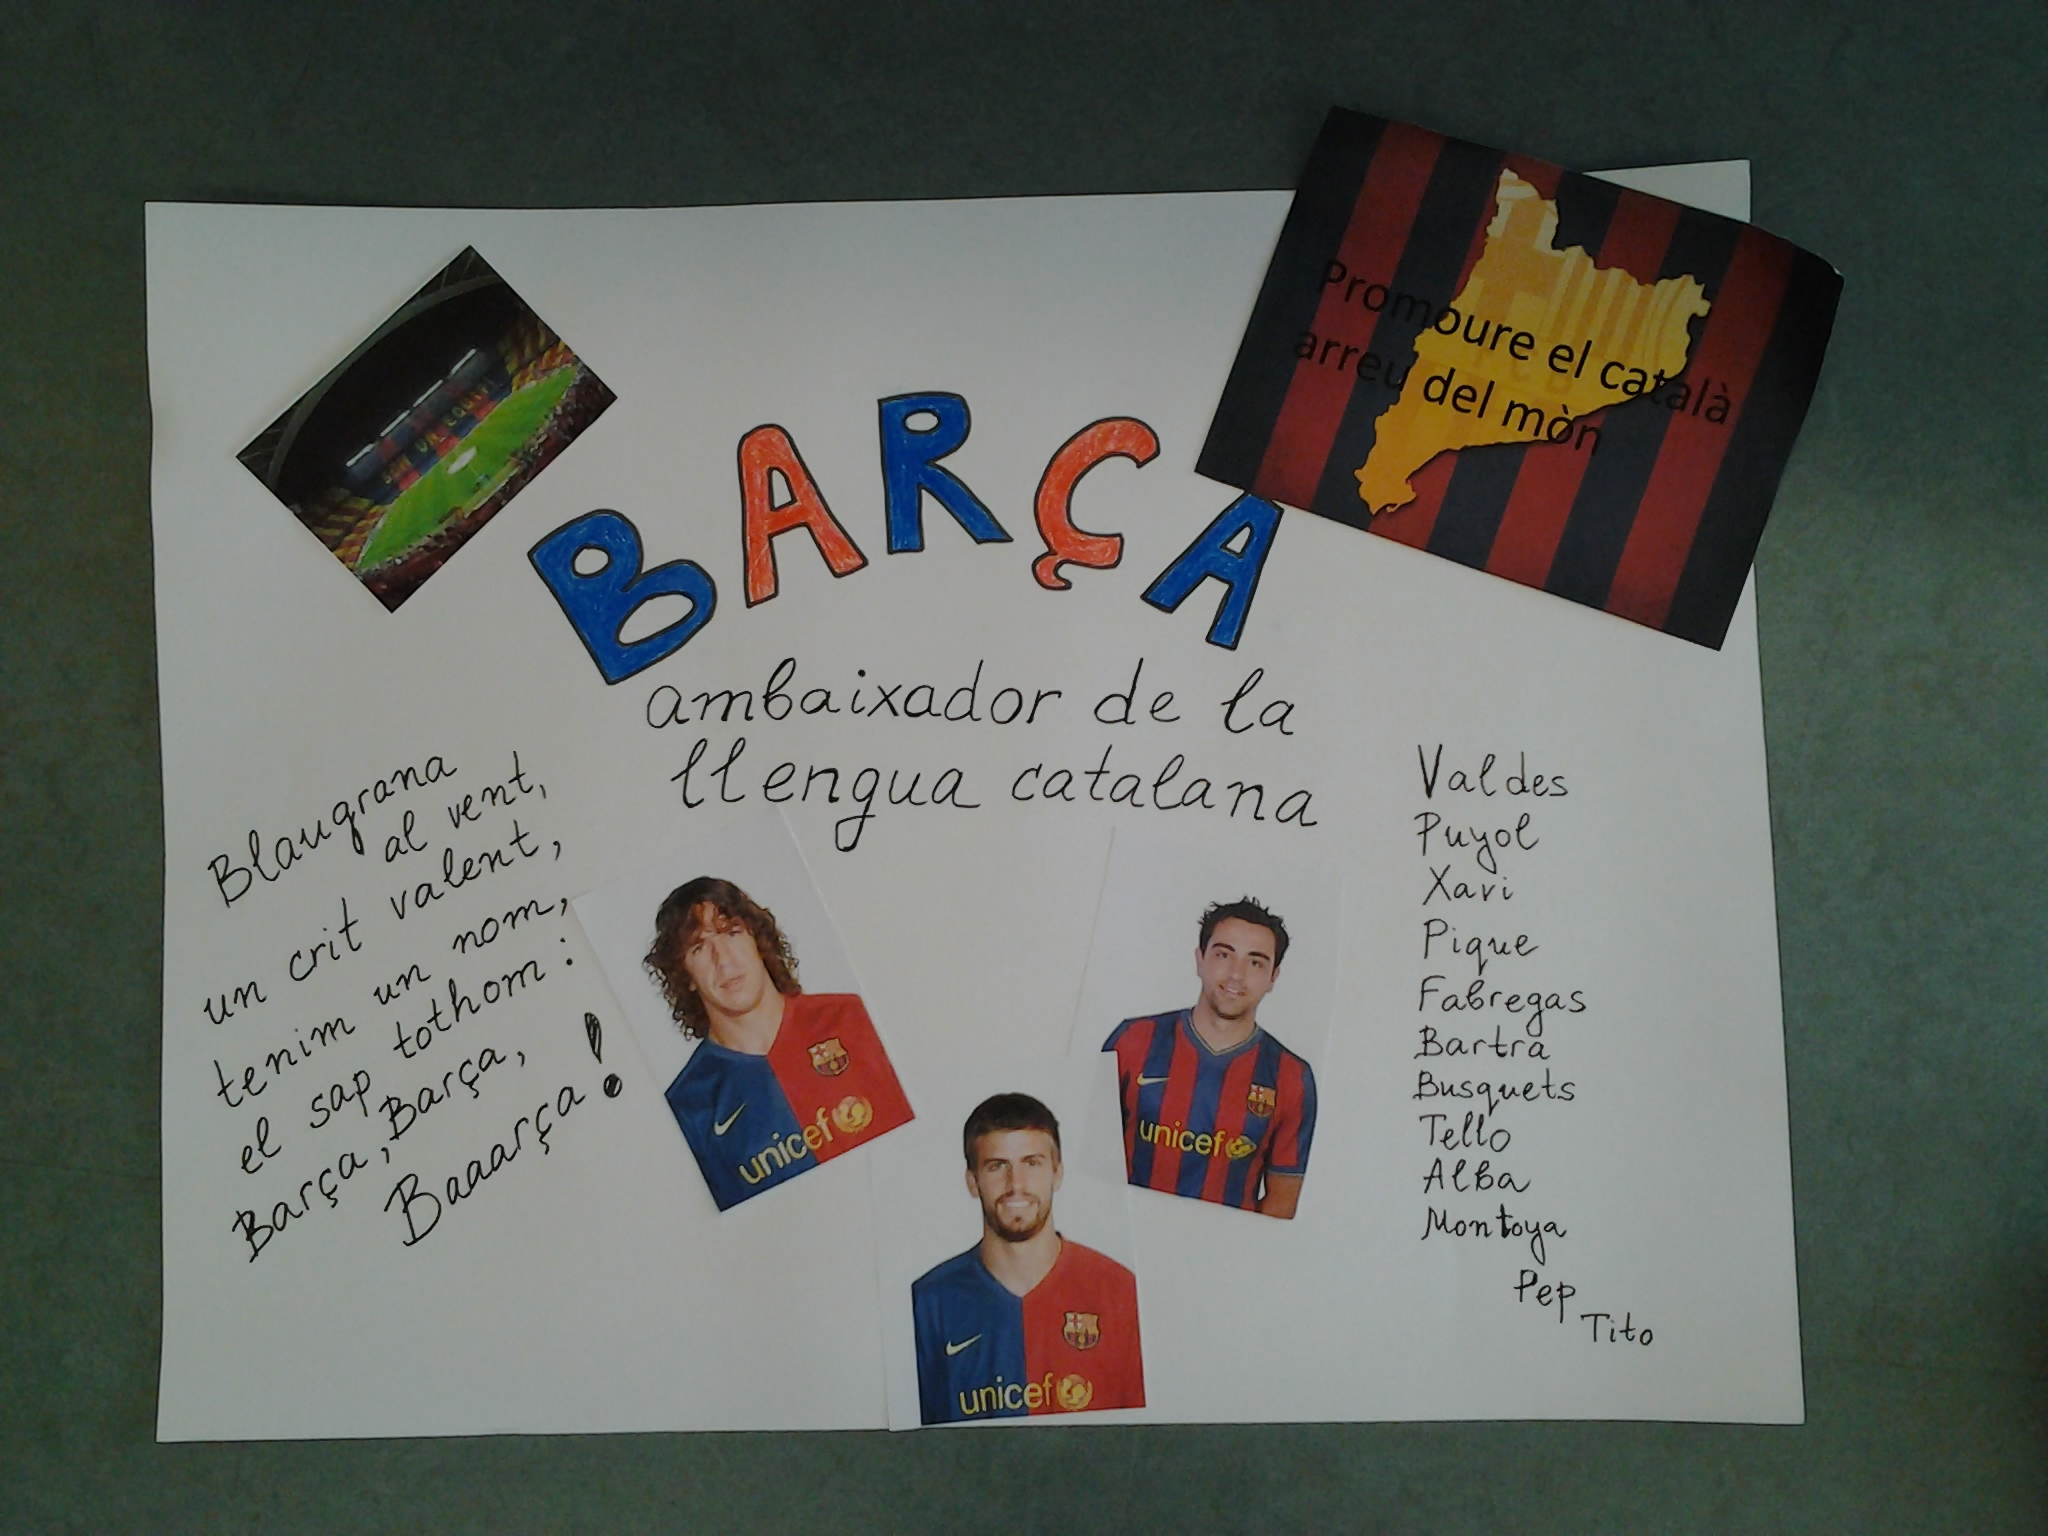 Promoure el català
arreu del mòn
BARÇA
ambaixador de la
llengua catalana
Blaugrana
al vent,
un crit valent,
tenim un nom,
el sap tothom:
Barça, Barça,
Baaarça!
unicef
unicef
unicef
Valdes
Puyol
Xavi
Pique
Fabregas
Bartra
Busquets
Tello
Alba
Montoya
Pep
Tito